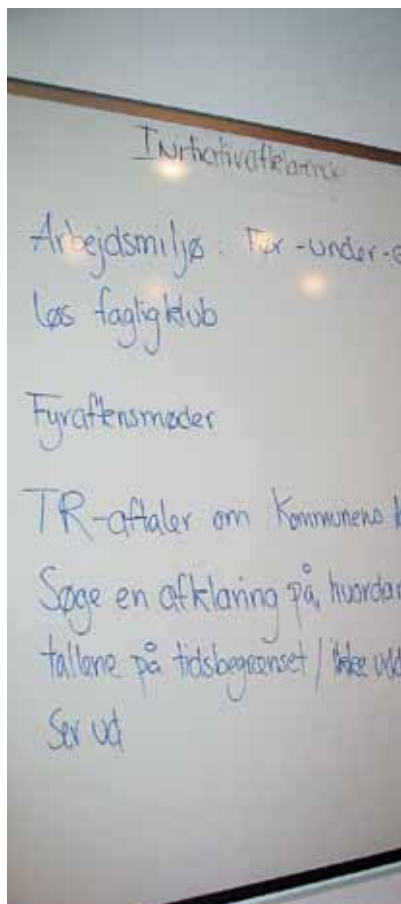 Initiativafklarende
Arbejdsmiljø. Før-under-e
løs fagligklub
Fyraftensmøder
TR-aftaler om Kommunens
Søge en afklaring på, hvordan
tallene på tidsbegrænset / ikke udd
Ser ud